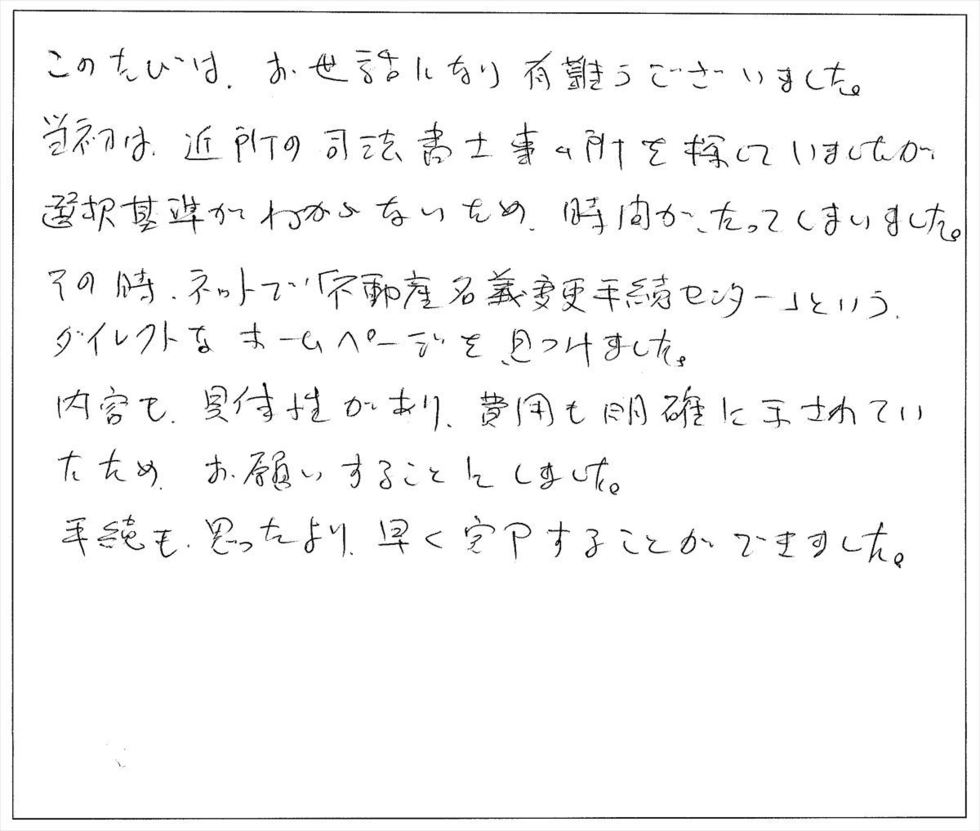 このたびは、お世話になり有難うございました。
当初は、近所の司法書士事ム所を探していましたが
選択基準がわからないため、時間が、たってしまいました。
その時、ネットで「不動産名義変更手続センター」という、
ダイレクトなホームページを見つけました。
内容も、具体性があり、費用も明確に示されてい
たため、お願いすることにしました。
手続も、思ったより、早く完了することができました。